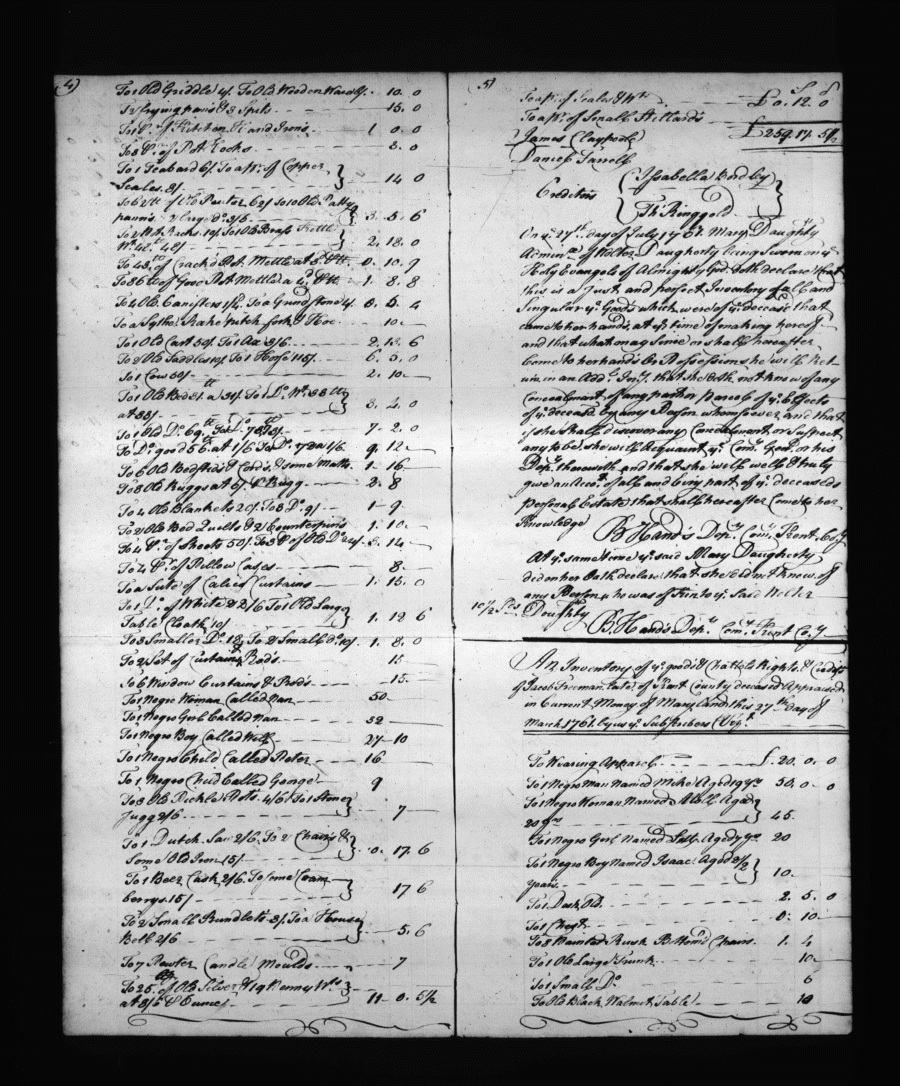 4)
To 1 Old Griddle 4/. To Old Wooden Ware 6/. - 10. 0
To 2 frying pans & 3 Spits - - - 15. 0
To 1 Pr. of Kitchen Hand Irons - - 1 0. 0
To 3 Pr. of Pot Hooks - - - 3. 0
To 1 Teaboard 6/. To a Pr. of Copper
Scales. 8/ - - - 14 0
To 62 lb of Old Pewter. 62/ To 10 Old Patty
panns. 2 large do. 3/6 - - 3. 5. 6
To 2 Racks. 10/. To 1 Old Brass Kettle
Wt. 48 lb 48/ - - - 2. 18. 0
To 43 lb. of Crack'd Pot Mettle at 3d P lb - 0. 10. 9
To 86 lb of Good Pot Mettle a 4d P lb - 1. 8. 8
To 4 Old Canisters 1/4. To a Grindstone 4/. 0. 5. 4
To a Sythe Rake pitch fork & Hoe - - 10 -
To 1 Old Cart 50/. To 1 Ax 3/6 - - 2. 13. 6
To 2 Old Saddles 10/. To 1 Horse 115/ - 6. 5. 0
To 1 Cow 50/ - - - 2. 10. -
To 1 Old Bed 31 lb. a 31/. To 1 Do. Wt. 38 lb
at 38/ - - - 3. 2. 0
To 1 Old Do. 69 lb - - 7. 2. 0
To Do. good 56 lb at 1/6 To Do. 78 a 1/6. 9. 12 -
To 6 Old Bedsteds & Cords, & some Matts - 1. 16 -
To 8 Old Ruggs at 6/ P Rugg. - - 2. 8
To 4 Old Blankets 20/. To 3 Do. 9/ - - 1 - 9.
To 2 Old Bed Quilts & 2 Counterpins - 1. 10. -
To 4 Pr. of Sheets 50/. To 3 Pr of Old Do. 24/. 3. 14 -
To 4 Pr. of Pillow Cases - - 8. -
To a Sute of Calico Curtains - - 1. 15. 0
To 1 Do. of White 22/6 To 1 Old Large
Table Cloath 10/ - - - 1. 12 6
To 3 Smaller Do. 18/. To 2 Small do. 10/. 1. 8. 0
To 2 Set of Curtain Rods - - 15 -
To 6 Window Curtains & Rods - - 15. -
To 1 Negro Woman Called Nan - - 50. -
To 1 Negro Girl Called Nan - - 52 -
To 1 Negro Boy Called Will - - 27 - 10
To 1 Negro Child Called Peter - - 16 -
To 1 Negro Child Called George - - 9
To 3 Old Pickle Pots. 4/6. To 1 Stone
Jugg 2/6 - - - 7 -
To 1 Dutch Saw 2/6. To 2 Chairs &
Some Old Iron 15/ - - 0. 17. 6
To 1 Beer Cask 2/6. To some Cran
berrys. 15/ - - - 17 6
To 2 Small Rundlets 3/. To a House
Bell 2/6 - - - 5. 6
To 7 Pewter Candle Moulds - - 7
To 25 Oz. of Old Silver & 19 Penny Wts
at 8/6 P Ounce - - 11 - 0. 5 1/2
5)
To a Pr. of Scales & Wts - - £0. 12. 0
To a Pr. of Small Stillards -
£259. 17. 5 1/2
James Claypole
Daniel Farrell
Creditors
Issabella Bordley
Th. Ringgold
On ye. 27th. day of July 1761 Mary Daughty
Adminx. of Walter Daugherty being Sworn on ye
Holy Evangels of Almighty God doth declare that
this is a Just and perfect Inventory of all and
Singular ye. Goods which were of ye. deceas'd that
came to her hands at ye. time of making hereof
and that what may Since or shall hereafter
Come to her hands Or Possessions she will Ret
urn in an Addl. Inv. that she doth not know of any
Concealment of any part or Parcel of ye. Effects
of ye. deceas'd by any Person whomsoever and that
if she shall discover any Concealment or suspect
any to be she will Acquaint ye. Comy. Genl. or his
Depy. therewith and that she will well & truly
give an Acct. of all and every part of ye. deceaseds
personal Estate that shall hereafter Come to her
Knowledge B. Hands Depy. Comy. Kent Coy
At ye. same time ye. said Mary Daugherty
did on her Oath declare that she did not know of
any Person yt. was of Kin to ye. Said Walter
10 1/2 Sds Doughty
B. Hands Depy. Comy. Kent Coy
An Inventory of ye. goods & Chattels Rights & Credits
of Jacob Freeman late of Kent County deceased Appraised
in Current Money of Maryland this 27th day of
March 1761 by us ye. Subscribers Vizt.
To Wearing Apparel - - £. 20. 0. 0
To 1 Negro Man Named Mike Aged 19 yrs 50. 0 - 0
To 1 Negro Woman Named Aged
20 yrs - - - 45 -
To 1 Negro Girl Named Aged 7 yrs 20
To 1 Negro Boy Named Isaac Aged 2 1/2
years. - - - 10.
To 1 Desk Old. - - 2. 5. 0
To 1 Chest - - 0. 10 -
To 8 Painted Rush Bottom'd Chairs. 1. 4
To 1 Old Large Trunk - - 10 -
To 1 Small Do. - - 6
To Old Black Walnut Table - - 10